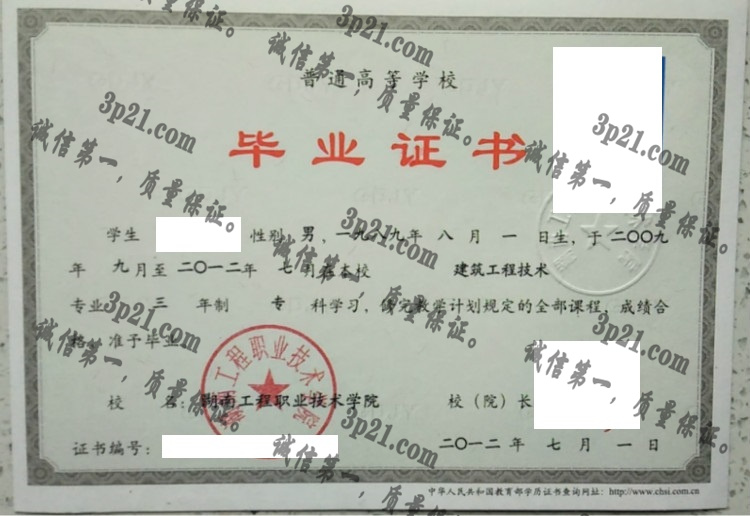 普通高等学校
毕业证书
学生 性别 男，一九八九年 八 月 一 日生，于 二〇〇九
年 九 月至 二〇一二年 七 月在本校 建筑工程技术
专业 三 年制 专 科学习，修完教学计划规定的全部课程，成绩合
格，准予毕业
校 名：湖南工程职业技术学院 校（院）长
证书编号： 二〇一二年 七 月 一 日
中华人民共和国教育部学历证书查询网址：http://www.chsi.com.cn
湖南工程职业技术学院
3p21.com
诚信第一，质量保证。
3p21.com
诚信第一，质量保证。
3p21.com
诚信第一，质量保证。
3p21.com
诚信第一，质量保证。
3p21.com
诚信第一，质量保证。
3p21.com
诚信第一，质量保证。
3p21.com
诚信第一，质量保证。
3p21.com
诚信第一，质量保证。